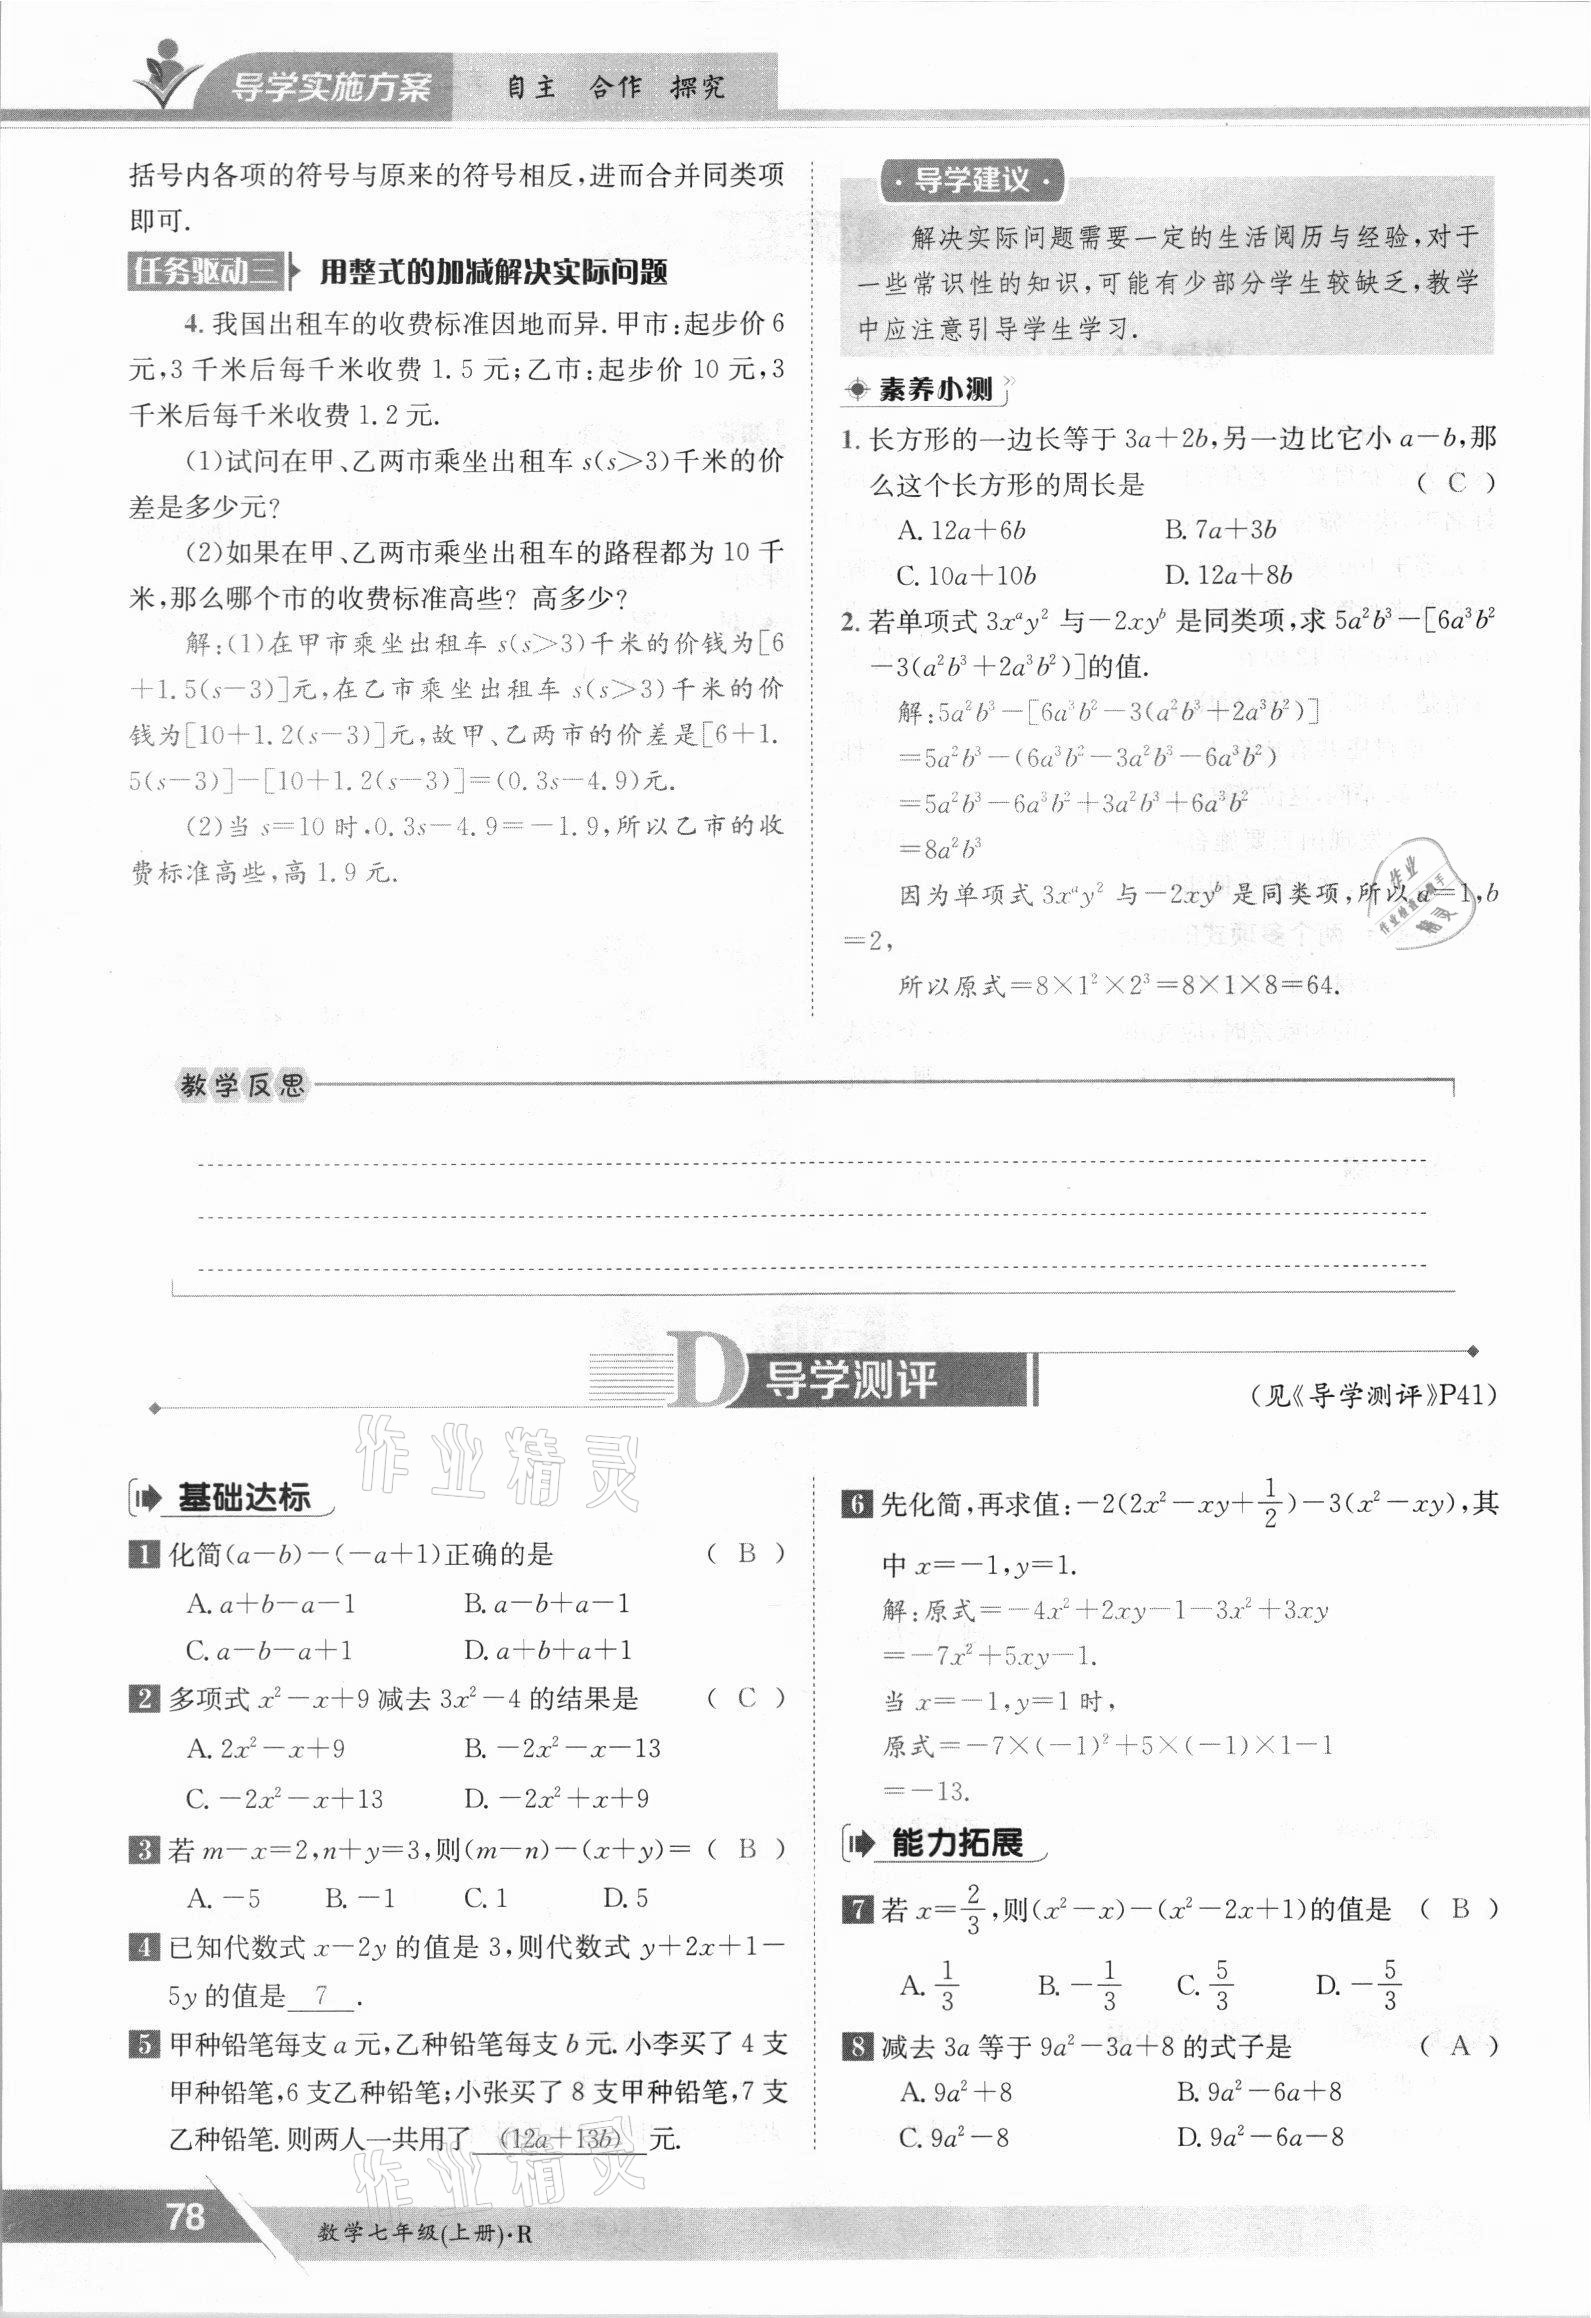 导学实施方案 自主 合作 探究
括号内各项的符号与原来的符号相反,进而合并同类项
即可.
任务驱动三 用整式的加减解决实际问题
4. 我国出租车的收费标准因地而异. 甲市:起步价 6
元,3 千米后每千米收费 1.5 元;乙市:起步价 10 元,3
千米后每千米收费 1.2 元.
(1)试问在甲、乙两市乘坐出租车 s(s>3)千米的价
差是多少元?
(2)如果在甲、乙两市乘坐出租车的路程都为 10 千
米,那么哪个市的收费标准高些? 高多少?
解:(1)在甲市乘坐出租车 s(s>3)千米的价钱为[6
+1.5(s-3)]元,在乙市乘坐出租车 s(s>3)千米的价
钱为[10+1.2(s-3)]元,故甲、乙两市的价差是[6+1.
5(s-3)]-[10+1.2(s-3)]=(0.3s-4.9)元.
(2)当 s=10 时,0.3s-4.9=-1.9,所以乙市的收
费标准高些,高 1.9 元.
·导学建议·
解决实际问题需要一定的生活阅历与经验,对于
一些常识性的知识,可能有少部分学生较缺乏,教学
中应注意引导学生学习.
素养小测
1. 长方形的一边长等于 3a+2b,另一边比它小 a-b,那
么这个长方形的周长是 ( C )
A. 12a+6b B. 7a+3b
C. 10a+10b D. 12a+8b
2. 若单项式 3xᵃy² 与-2xyᵇ 是同类项,求 5a²b³-[6a³b²
-3(a²b³+2a³b²)]的值.
解:5a²b³-[6a³b²-3(a²b³+2a³b²)]
=5a²b³-(6a³b²-3a²b³-6a³b²)
=5a²b³-6a³b²+3a²b³+6a³b²
=8a²b³
因为单项式 3xᵃy² 与-2xyᵇ 是同类项,所以 a=1,b
=2,
所以原式=8×1²×2³=8×1×8=64.
作业
作业检查小助手
精灵
教学反思
D 导学测评
(见《导学测评》P41)
作业精灵
基础达标
1 化简(a-b)-(-a+1)正确的是 ( B )
A. a+b-a-1 B. a-b+a-1
C. a-b-a+1 D. a+b+a+1
2 多项式 x²-x+9 减去 3x²-4 的结果是 ( C )
A. 2x²-x+9 B. -2x²-x-13
C. -2x²-x+13 D. -2x²+x+9
3 若 m-x=2,n+y=3,则(m-n)-(x+y)= ( B )
A. -5 B. -1 C. 1 D. 5
4 已知代数式 x-2y 的值是 3,则代数式 y+2x+1-
5y 的值是 7 .
5 甲种铅笔每支 a 元,乙种铅笔每支 b 元. 小李买了 4 支
甲种铅笔,6 支乙种铅笔;小张买了 8 支甲种铅笔,7 支
乙种铅笔. 则两人一共用了 (12a+13b) 元.
作业精灵
6 先化简,再求值:-2(2x²-xy+1/2)-3(x²-xy),其
中 x=-1,y=1.
解:原式=-4x²+2xy-1-3x²+3xy
=-7x²+5xy-1.
当 x=-1,y=1 时,
原式=-7×(-1)²+5×(-1)×1-1
=-13.
能力拓展
7 若 x=2/3,则(x²-x)-(x²-2x+1)的值是 ( B )
A. 1/3 B. -1/3 C. 5/3 D. -5/3
8 减去 3a 等于 9a²-3a+8 的式子是 ( A )
A. 9a²+8 B. 9a²-6a+8
C. 9a²-8 D. 9a²-6a-8
78 数学七年级(上册)·R